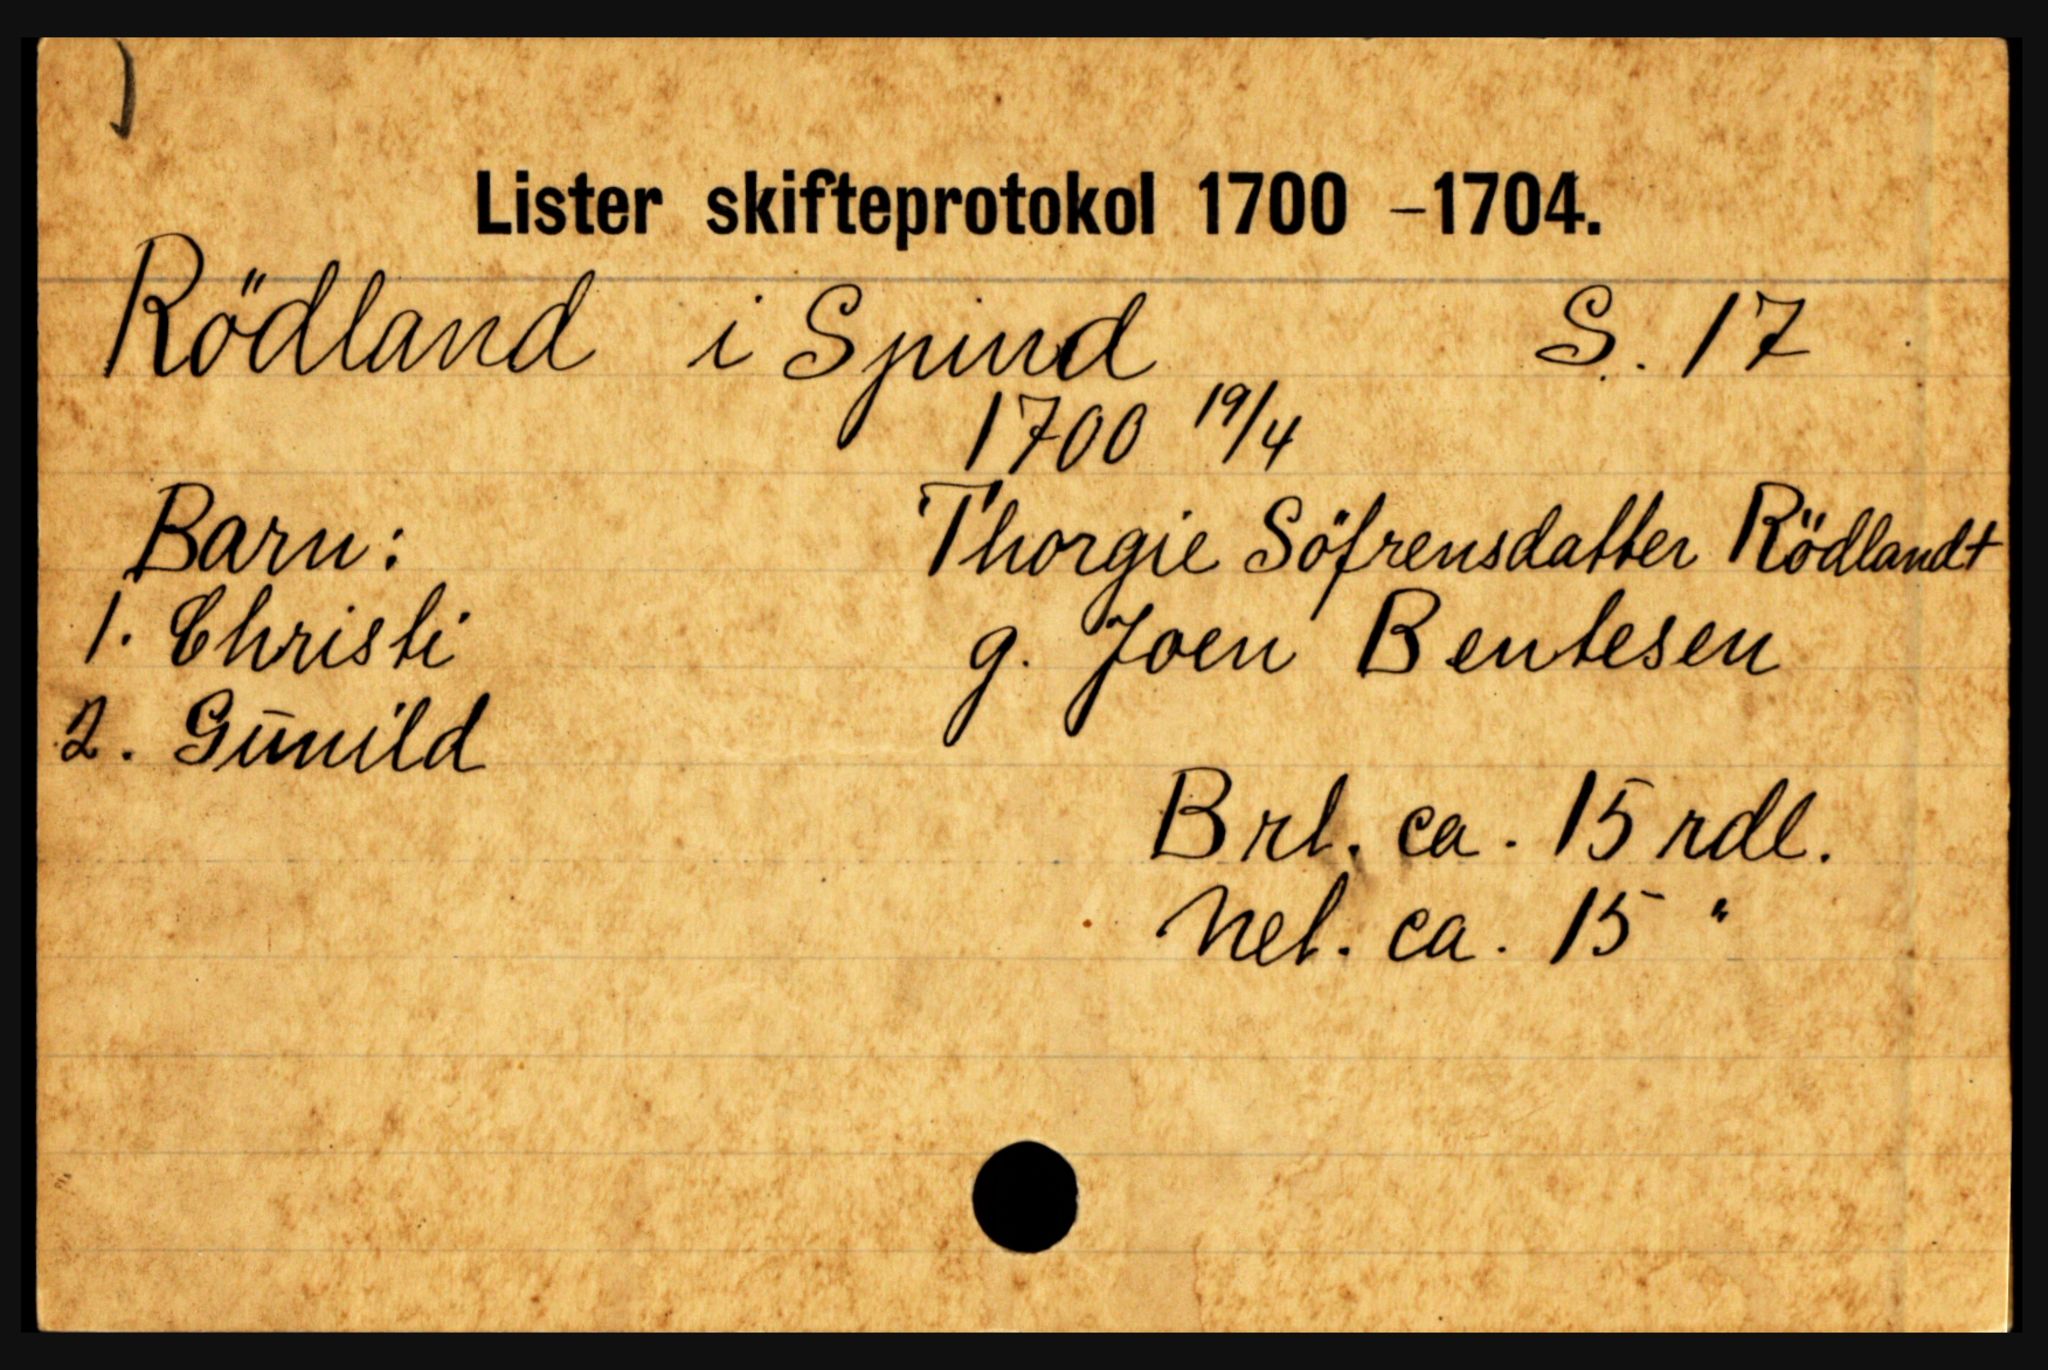 Lister skifteprotokol 1700 -1704.
Rödland i Spind S. 17
1700 19/4
Barn: Thorgie Söfrensdatter Rödlandt
1. Christi g. Joen Bentesen
2. Gūnild
Brt. ca. 15 rdl.
Net. ca. 15 "